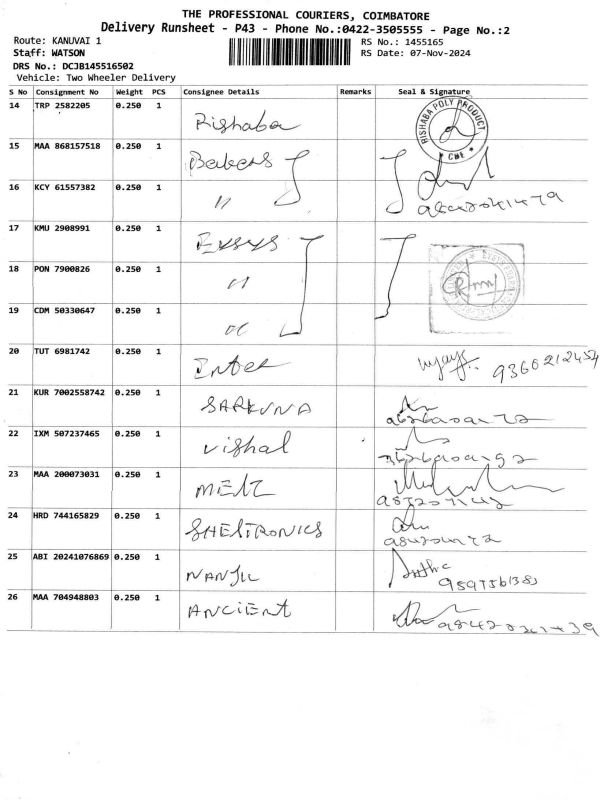 THE PROFESSIONAL COURIERS, COIMBATORE
Delivery Runsheet - P43 - Phone No.:0422-3505555 - Page No.:2
Route: KANUVAI 1 RS No.: 1455165
Staff: WATSON RS Date: 07-Nov-2024
DRS No.: DCJB145516502
Vehicle: Two Wheeler Delivery
S No Consignment No Weight PCS Consignee Details Remarks Seal & Signature
14 TRP 2582205 0.250 1 Rishaba RISHABA POLY PRODUCT CBE
15 MAA 868157518 0.250 1
16 KCY 61557382 0.250 1 "
17 KMU 2908991 0.250 1
18 PON 7900826 0.250 1 "
19 CDM 50330647 0.250 1 "
20 TUT 6981742 0.250 1 9360212454
21 KUR 7002558742 0.250 1
22 IXM 507237465 0.250 1 Vishal
23 MAA 200073031 0.250 1
24 HRD 744165829 0.250 1 SHELTRONICS
25 ABI 20241076869 0.250 1
26 MAA 704948803 0.250 1 ANCIENT